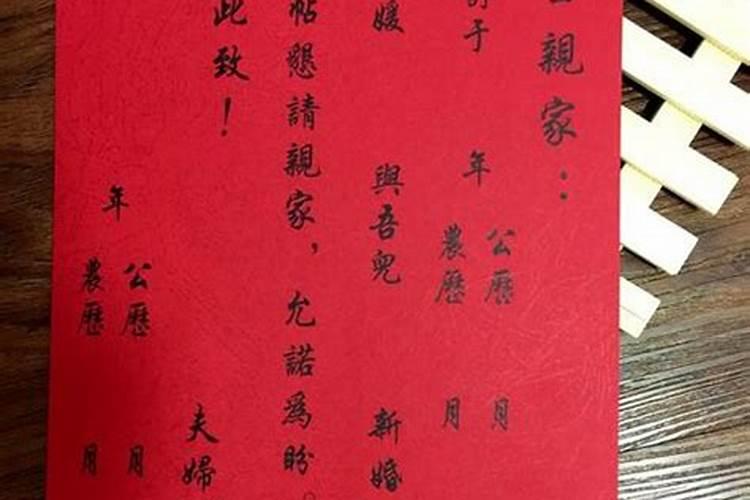 親家：
于 年 公曆 農曆 月 月
媛 與吾兒 新婚
帖懇請親家，允諾為盼。
此致！
夫婦
年 公曆 農曆 月 月